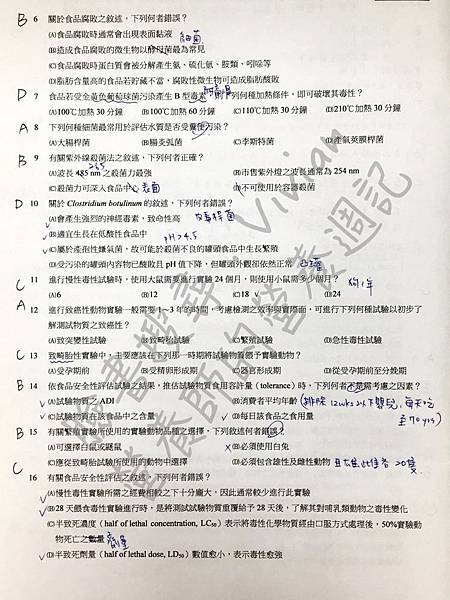 B 6 關於食品腐敗之敘述，下列何者錯誤？
(A)食品腐敗時通常會出現表面黏液 細菌
(B)造成食品腐敗的微生物以酵母菌最為常見
(C)食品腐敗時蛋白質會被分解產生氨、硫化氫、胺類、吲哚等
(D)脂肪含量高的食品若貯藏不當，腐敗性微生物可造成脂肪酸敗
D 7 食品若受金黃色葡萄球菌污染產生 B 型毒素，則下列何種加熱條件，即可破壞其毒性？
(A)100℃加熱 30 分鐘 (B)100℃加熱 60 分鐘 (C)110℃加熱 30 分鐘 (D)210℃加熱 30 分鐘
A 8 下列何種細菌最常用於評估水質是否受糞便污染？
(A)大腸桿菌 (B)腸炎弧菌 (C)李斯特菌 (D)產氣莢膜桿菌
B 9 有關紫外線殺菌法之敘述，下列何者正確？
265
(A)波長 485 nm 之殺菌力最強 (B)市售紫外燈之波長通常為 254 nm
(C)殺菌力可深入食品中心 表面 (D)不可使用於容器殺菌
D 10 關於 Clostridium botulinum 的敘述，下列何者錯誤？
(A)會產生強烈的神經毒素，致命性高 肉毒桿菌
(B)適宜生長在低酸性食品中 pH>4.5
(C)屬於產孢性嫌氣菌，故可能於殺菌不良的罐頭食品中生長繁殖
(D)受污染的罐頭內容物已酸敗且 pH 值下降，但罐頭外觀卻依然正常
C 11 進行慢性毒性試驗時，使用大鼠需要進行實驗 24 個月，則使用小鼠需多少個月？ 狗1年
(A)6 (B)12 (C)18 (D)24
A 12 進行致癌性動物實驗一般需要 1～3 年的時間，考慮檢測之效率與實際面，可進行下列何種試驗以初步了
解測試物質之致癌性？
(A)致突變性試驗 (B)致畸胎試驗 (C)繁殖試驗 (D)急性毒性試驗
C 13 致畸胎性實驗中，主要應該在下列那一時期將試驗物質餵予實驗動物？
(A)受孕期前 (B)受精卵形成期 (C)器官形成期 (D)從受孕期前至分娩期
B 14 依食品安全性評估試驗之結果，推估試驗物質食用容許量（tolerance）時，下列何者不是需考慮之因素？
(A)試驗物質之 ADI (B)消費者平均年齡
(C)試驗物質在該食品中之含量 (D)每日該食品之食用量
B 15 有關繁殖實驗所使用的實驗動物品種之選擇，下列敘述何者錯誤？
(A)可選擇白鼠或鼷鼠 (B)必須使用白兔
(C)應從致畸胎試驗所使用的動物中選擇 (D)必須包含雄性及雌性動物
C 16 有關食品安全性評估之敘述，下列何者錯誤？
(A)慢性毒性實驗所需之經費相較之下十分龐大，因此通常較少進行此實驗
(B)28 天餵食毒性實驗進行時，是將測試試驗物質重覆給予 28 天後，了解其對哺乳類動物之毒性變化
(C)半致死濃度（half of lethal concentration, LC50）表示將毒性化學物質經由口服方式處理後，50%實驗動
物死亡之數量 劑量
(D)半致死劑量（half of lethal dose, LD50）數值愈小，表示毒性愈強